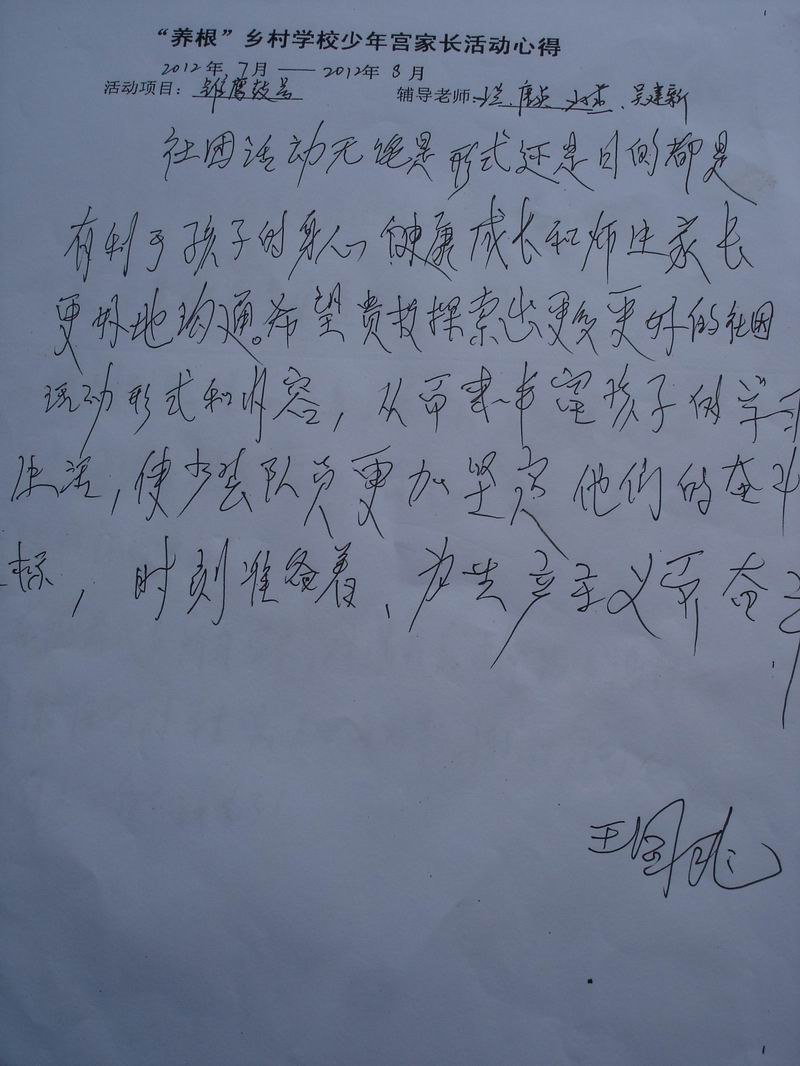 “养根”乡村学校少年宫家长活动心得
2012年7月——2012年8月
活动项目：雏鹰鼓号 辅导老师： 吴建新
社团活动无论是形式还是目的都是
有利于孩子的身心健康成长和师生家长
更好地沟通。希望贵校探索出更多更好的社团
活动形式和内容，从而来丰富孩子的学习
生活，使少先队员更加坚定他们的奋斗
标，时刻准备着，为共产主义而奋斗